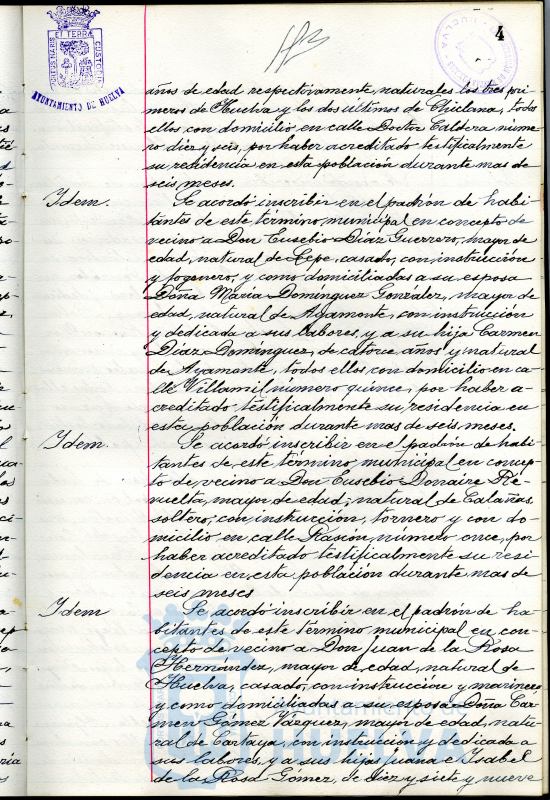 4
PORTUS MARIS ET TERRÆ CUSTODIA
AYUNTAMIENTO DE HUELVA
HUELVA
años de edad respectivamente, naturales los tres pri-
meros de Huelva y los dos últimos de Chiclana, todos
ellos con domicilio en calle Doctor Caldera núme-
ro diez y seis, por haber acreditado testificalmente
su residencia en esta población durante mas de
seis meses.
Idem. Se acordó inscribir en el padrón de habi-
tantes de este término municipal en concepto de
vecino a Don Eusebio Díaz Guerrero, mayor de
edad, natural de Lepe, casado, con instrucción
y fogonero, y como domiciliadas a su esposa
Doña María Domínguez González, mayor de
edad, natural de Ayamonte, con instrucción
y dedicada a sus labores, y a su hija Carmen
Díaz Domínguez, de catorce años y natural
de Ayamonte, todos ellos con domicilio en ca-
lle Villamil número quince, por haber a-
creditado testificalmente su residencia en
esta población durante mas de seis meses.
Idem. Se acordó inscribir en el padrón de habi-
tantes de este término municipal en concep-
to de vecino a Don Eusebio Donaire Re-
vuelta, mayor de edad, natural de Calañas,
soltero, con instrucción, tornero y con do-
micilio en calle Rasión, número once, por
haber acreditado testificalmente su resi-
dencia en esta población durante mas de
seis meses
Idem Se acordó inscribir en el padrón de ha-
bitantes de este término municipal en con-
cepto de vecino a Don Juan de la Rosa
Hernández, mayor de edad, natural de
Huelva, casado, con instrucción y marinero
y como domiciliadas a su esposa Doña Car-
men Gómez Vázquez, mayor de edad, natu-
ral de Cartaya, con instrucción y dedicada a
sus labores, y a sus hijas Juana e Isabel
de la Rosa Gómez, de diez y siete y nueve
Ayuntamiento de
HUELVA